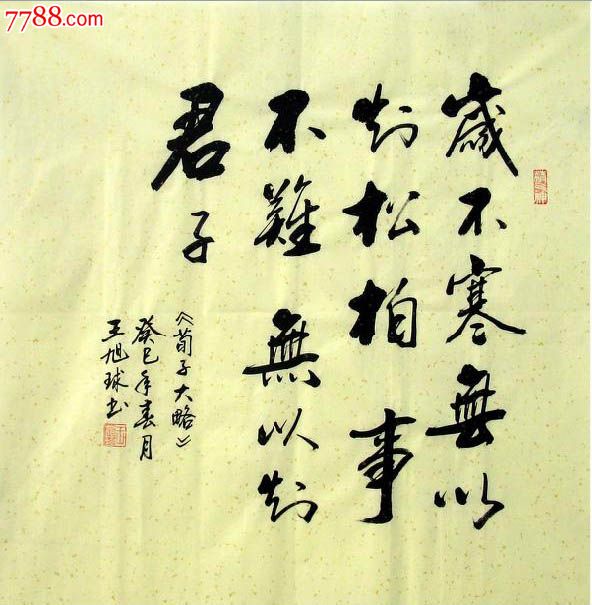 7788.com
歲不寒無以
知松柏事
不難無以知
君子
《荀子大略》
癸巳年春月
王旭球书